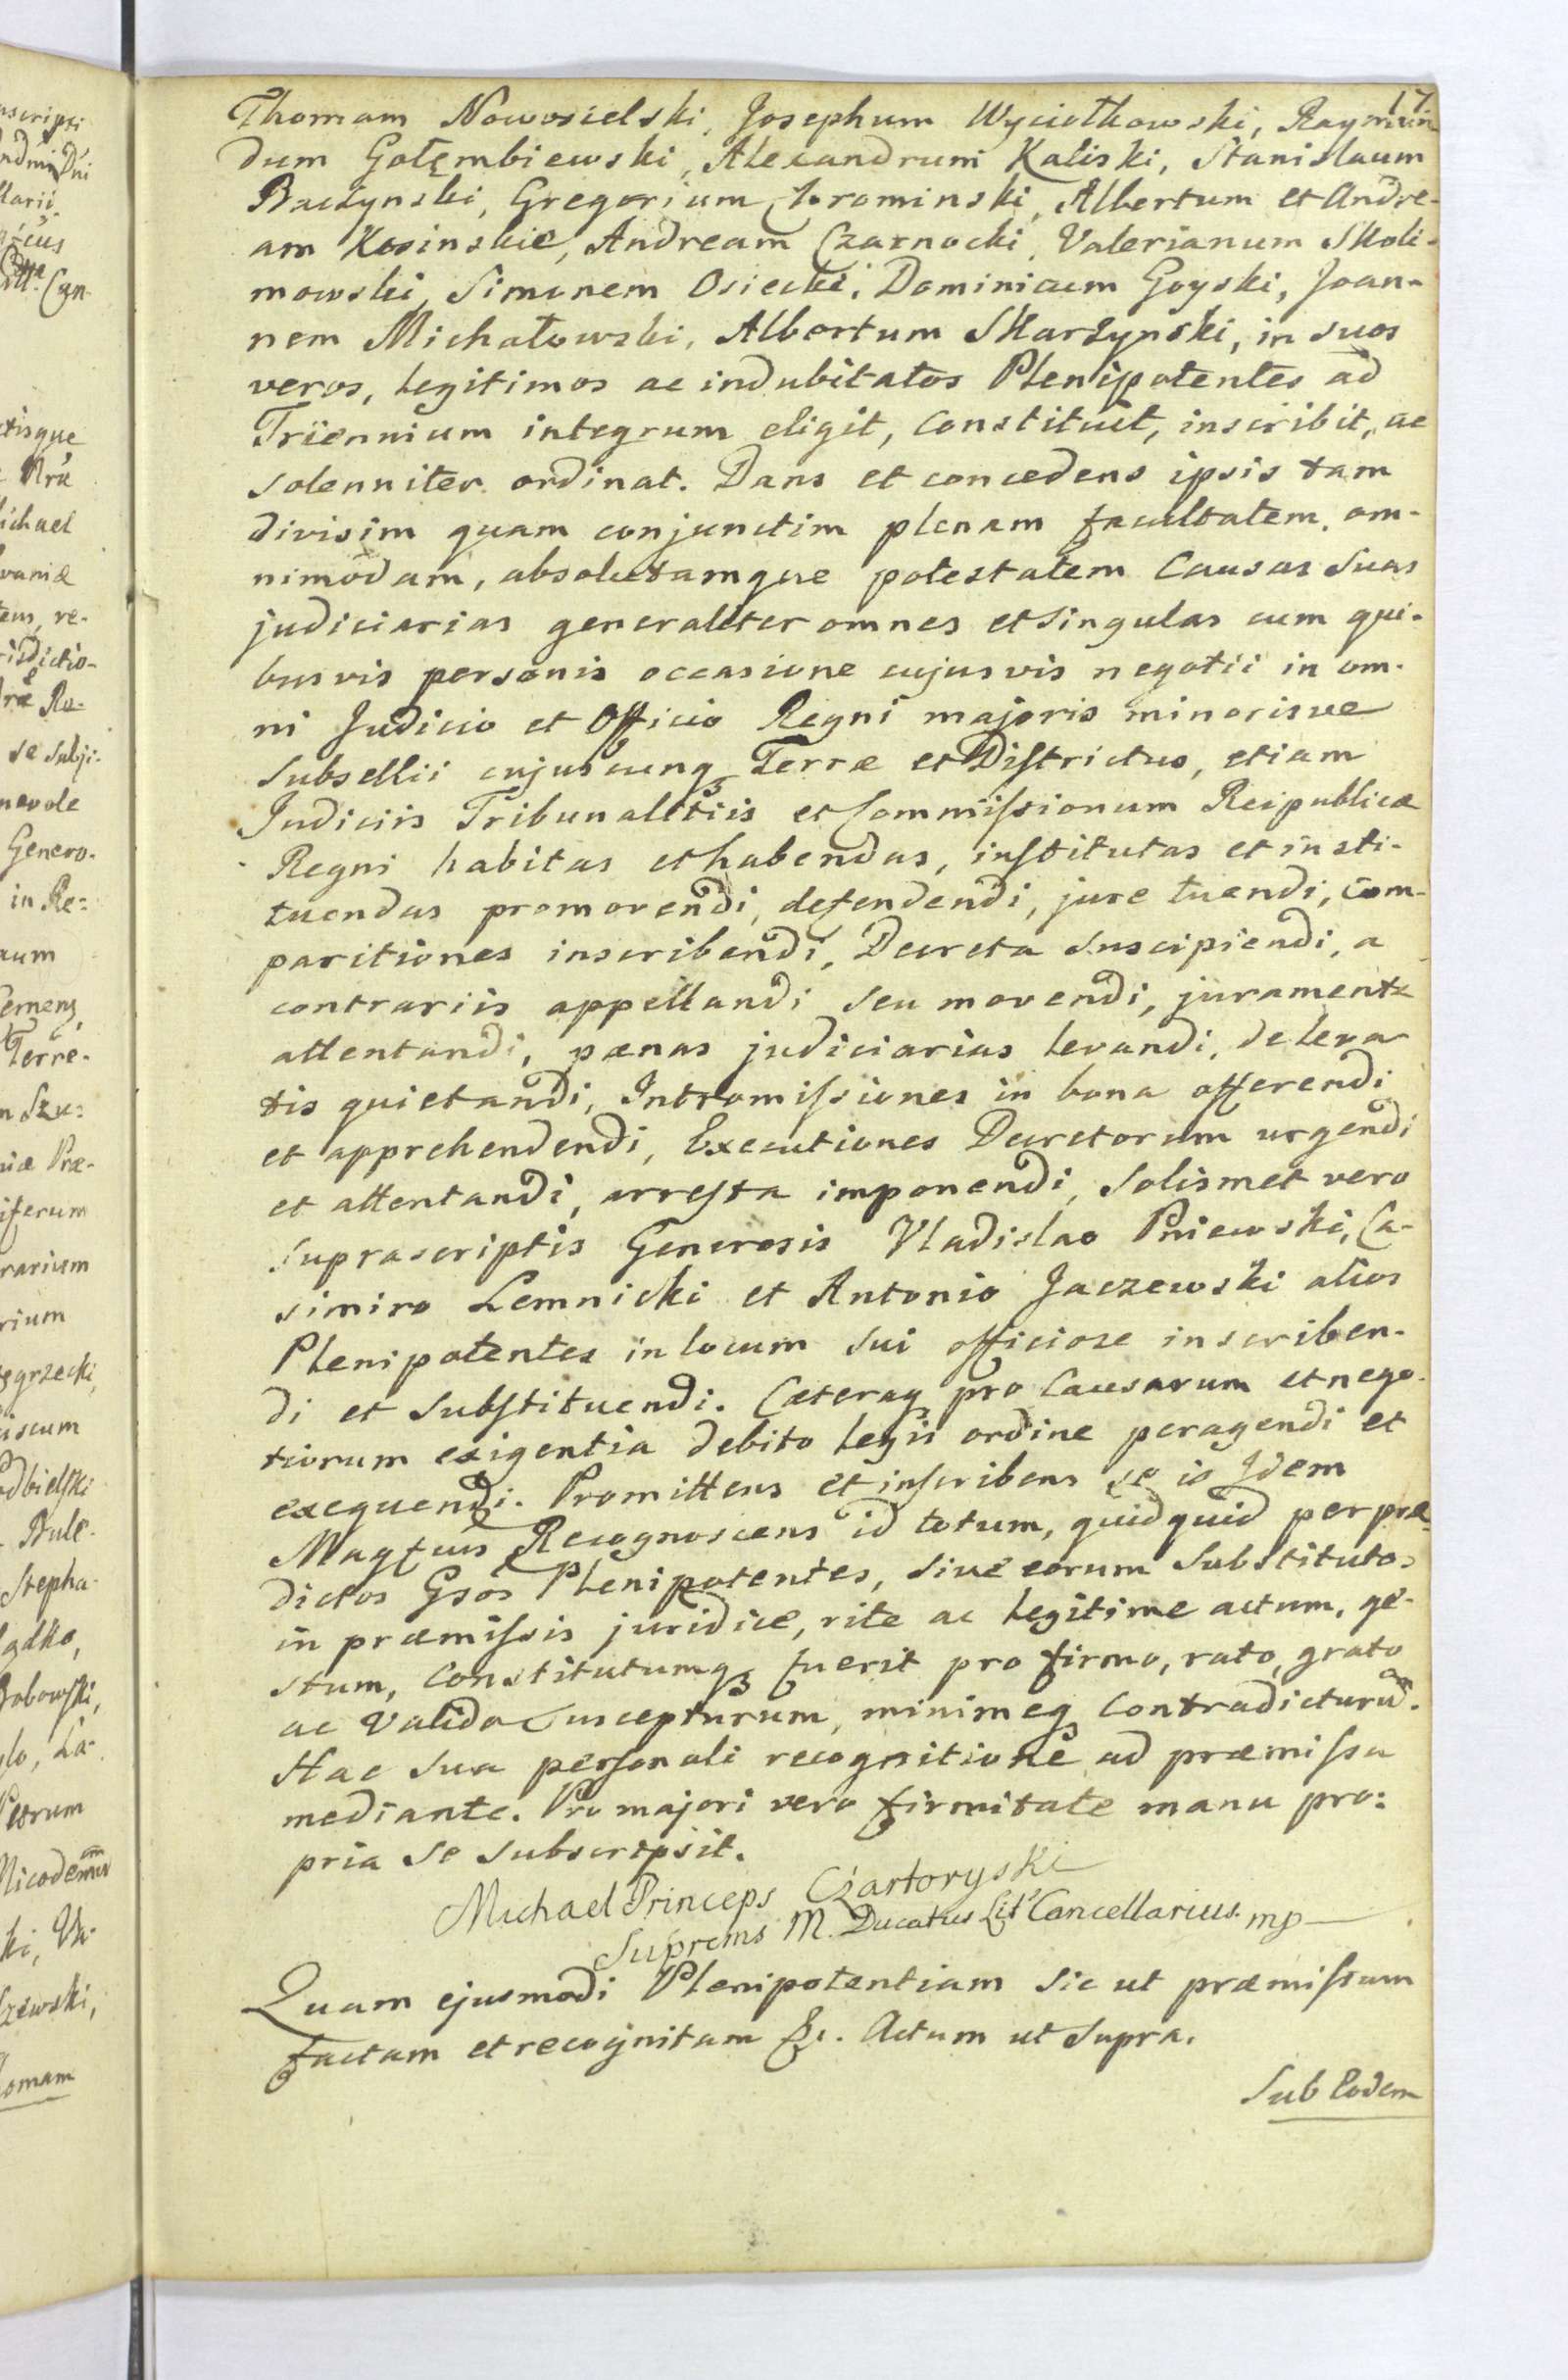 17.
Thomam Nowosielski, Josephum Wyciołkowski, Raymun
dum Gołęmbiewski, Alexandrum Kaliski, Stanislaum
Baczynski, Gregorium Chrominski, Albertum et Andre-
am Kosinskie, Andream Czarnocki, Valerianum Skoli-
mowski, Simonem Osiecki, Dominicum Goyski, Joan-
nem Michałowski, Albertum Skarżynski, in suos
veros, legitimos ac indubitatos Plenipotentes ad
Triennium integrum eligit, Constituit, inscribit, ac
solenniter ordinat. Dans et concedens ipsis tam
divisim quam conjunctim plenam facultatem, om-
nimodam, absolutamque potestatem Causas Suas
judiciarias generaliter omnes et singulas cum qui-
busvis personis occasione cujusvis negotii in om-
ni Judicio et Officio Regni majoris minorisve
Subsellii cujuscunq Terræ et Districtus, etiam
Judiciis Tribunalitiis et Commissionum Reipublicæ
Regni habitas et habendas, institutas et insti-
tuendas promovendi, defendendi, jure tuendi, Com-
paritiones inscribendi, Decreta suscipiendi, a
contrariis appellandi seu movendi, juramenta
attentandi, pænas judiciarias levandi, de leva
tis quietandi, Intromissiones in bona offerendi
et apprehendendi, Executiones Decretorum urgendi
et attentandi, arresta imponendi, Solismet vero
supra scriptis Generosis Vladislao Pniewski, Ca-
simiro Lemnicki et Antonio Jaczewski alios
Plenipotentes in locum sui officiose inscriben-
di et substituendi. Cæteraq pro Causarum et nego-
tiorum exigentia debito legis ordine peragendi et
exequendi. Promittens et inscribens se is Idem
Magfcus Recognoscens id totum, quidquid per præ-
dictos Gsos Plenipotentes, sive eorum Substitutos
in præmissis juridice, rite ac legitime actum, ge-
stum, Constitutumq fuerit pro firmo, rato, grato
ac Valido suscepturum, minimeq Contradicturu.
Hac sua personali recognitione ad præmissa
mediante. Pro majori vero firmitate manu pro:
pria se subscripsit.
Michael Princeps Czartoryski
Suprems M. Ducatus Lit' Cancellarius mp
Quam ejusmodi Plenipotentiam sic ut præmissum
factam et recognitam &c. Actum ut Supra.
Sub Eodem